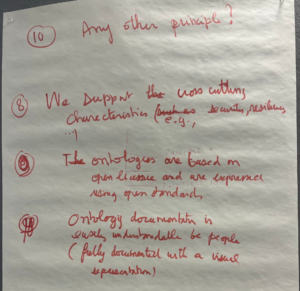 10 Any other principle?
8 We support the cross cutting
characteristics (e.g., security, resiliency
...)
9 The ontologies are based on
open license and are expressed
using open standards
Ontology documentation is
easily understandable be people
(fully documented with a visual
representation)